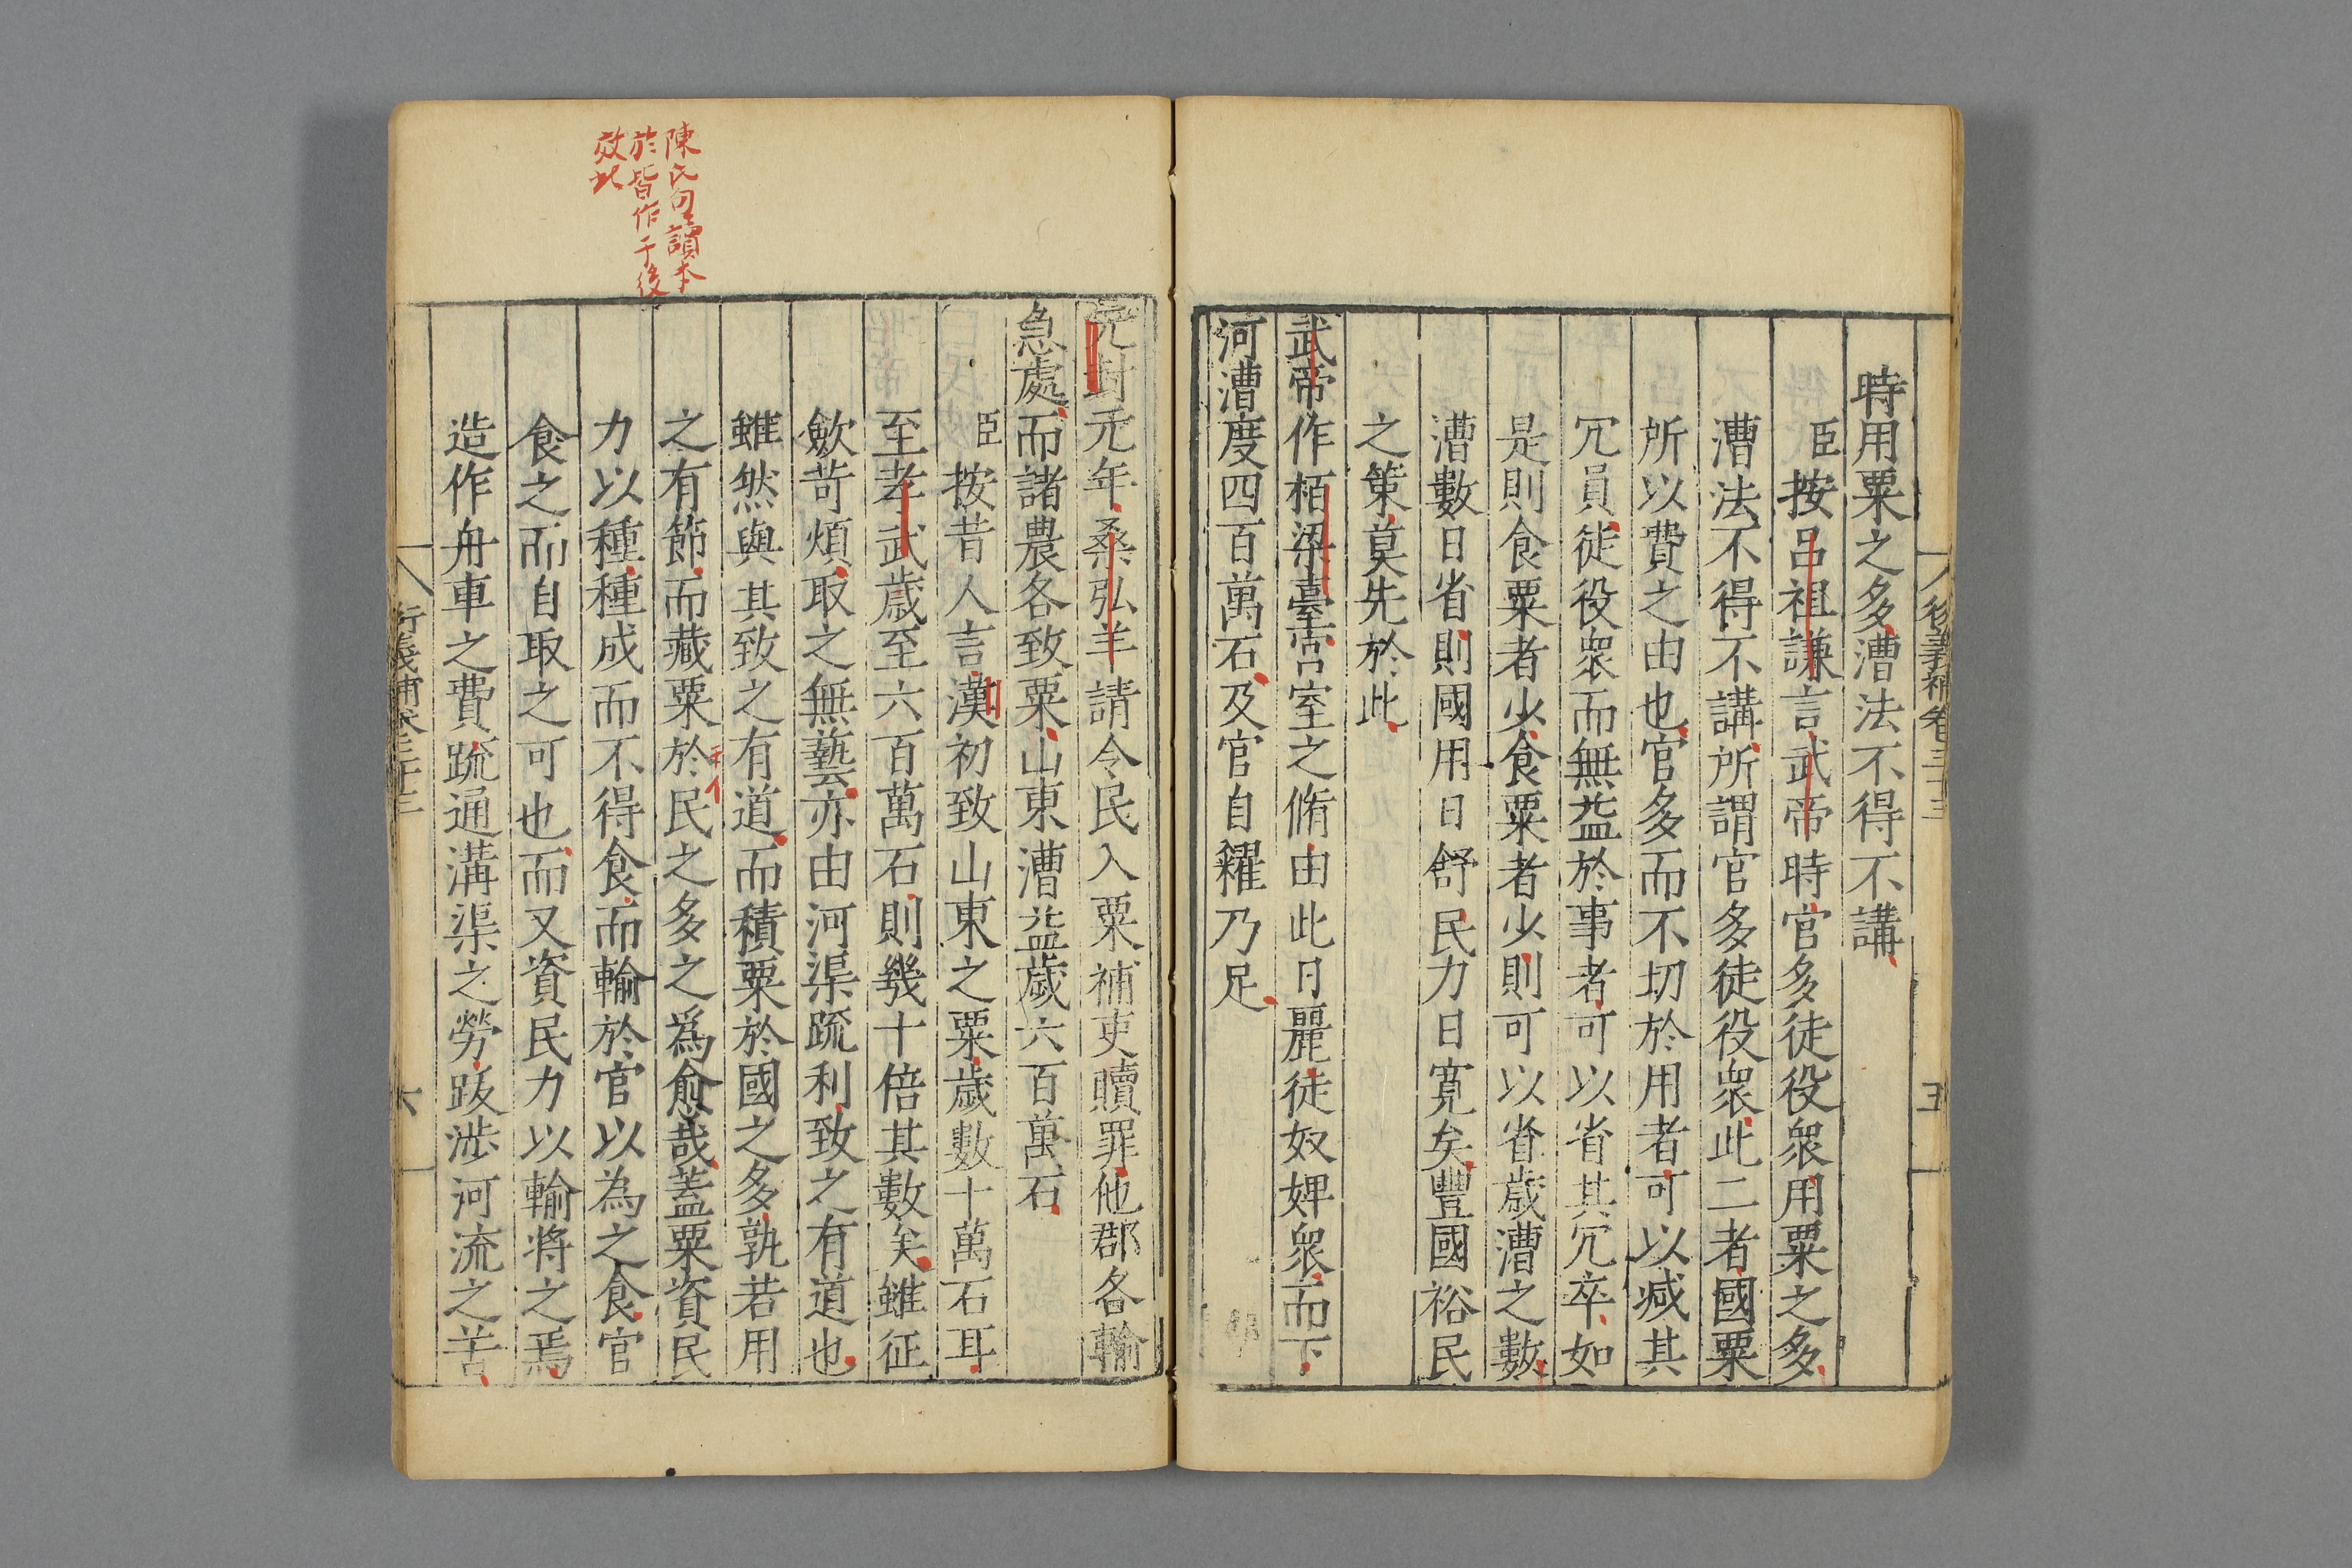 時用粟之多漕法不得不講
臣按呂祖謙言武帝時官多徒役衆用粟之多
漕法不得不講所謂官多徒役衆此二者國粟
所以費之由也官多而不切於用者可以减其
冗員徒役衆而無益於事者可以省其冗卒如
是則食粟者少食粟者少則可以省歲漕之數
漕數日省則國用日舒民力日寛矣豐國裕民
之策莫先於此
武帝作栢梁臺宮室之脩由此日麗徒奴婢衆而下
河漕度四百萬石及官自糴乃足
五
陳氏句讀本
於皆作于後
效此
元封元年桑弘羊請令民入粟補吏贖罪他郡各輸
急處而諸農各致粟山東漕益歲六百萬石
臣按昔人言漢初致山東之粟歲數十萬石耳
至孝武歲至六百萬石則幾十倍其數矣雖征
歛苛煩取之無藝亦由河渠疏利致之有道也
雖然與其致之有道而積粟於國之多孰若用
之有節而藏粟於民之多之爲愈哉蓋粟資民
于作
力以種種成而不得食而輸於官以為之食官
食之而自取之可也而又資民力以輸將之焉
造作舟車之費疏通溝渠之勞跋涉河流之苦
衍義補卷三十三
六